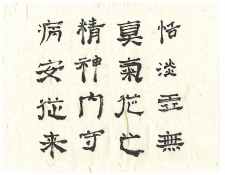 恬淡虚無
眞氣従之
精神内守
病安従来